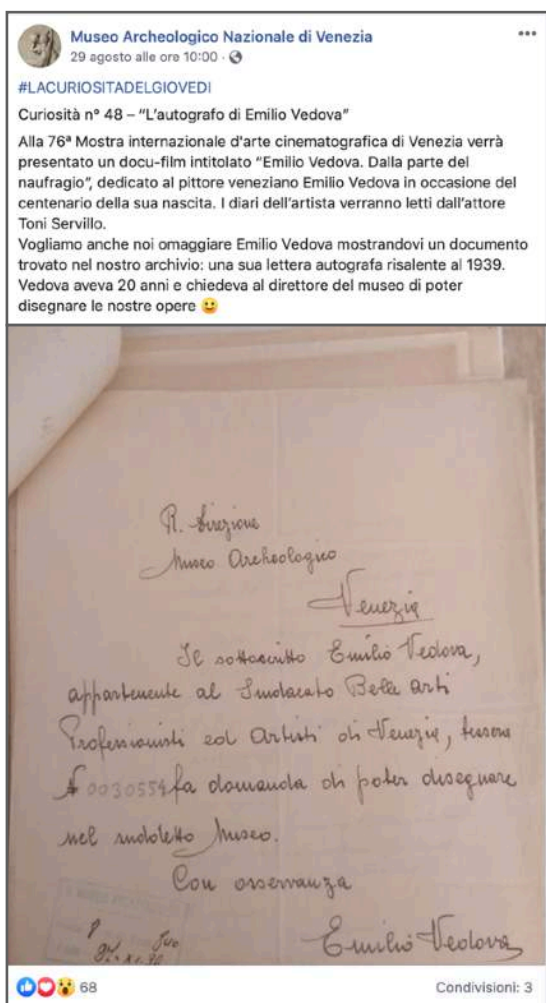 Museo Archeologico Nazionale di Venezia
29 agosto alle ore 10:00 ·
#LACURIOSITADELGIOVEDI
Curiosità n° 48 – “L’autografo di Emilio Vedova”
Alla 76ª Mostra internazionale d'arte cinematografica di Venezia verrà
presentato un docu-film intitolato “Emilio Vedova. Dalla parte del
naufragio”, dedicato al pittore veneziano Emilio Vedova in occasione del
centenario della sua nascita. I diari dell’artista verranno letti dall’attore
Toni Servillo.
Vogliamo anche noi omaggiare Emilio Vedova mostrandovi un documento
trovato nel nostro archivio: una sua lettera autografa risalente al 1939.
Vedova aveva 20 anni e chiedeva al direttore del museo di poter
disegnare le nostre opere 😀
R. Direzione
Museo Archeologico
Venezia
Il sottoscritto Emilio Vedova,
appartenente al Sindacato Belle Arti
Professionisti ed Artisti di Venezia, tessera
N 0030554 fa domanda di poter disegnare
nel suddetto Museo.
Con osservanza
Emilio Vedova
68
Condivisioni: 3